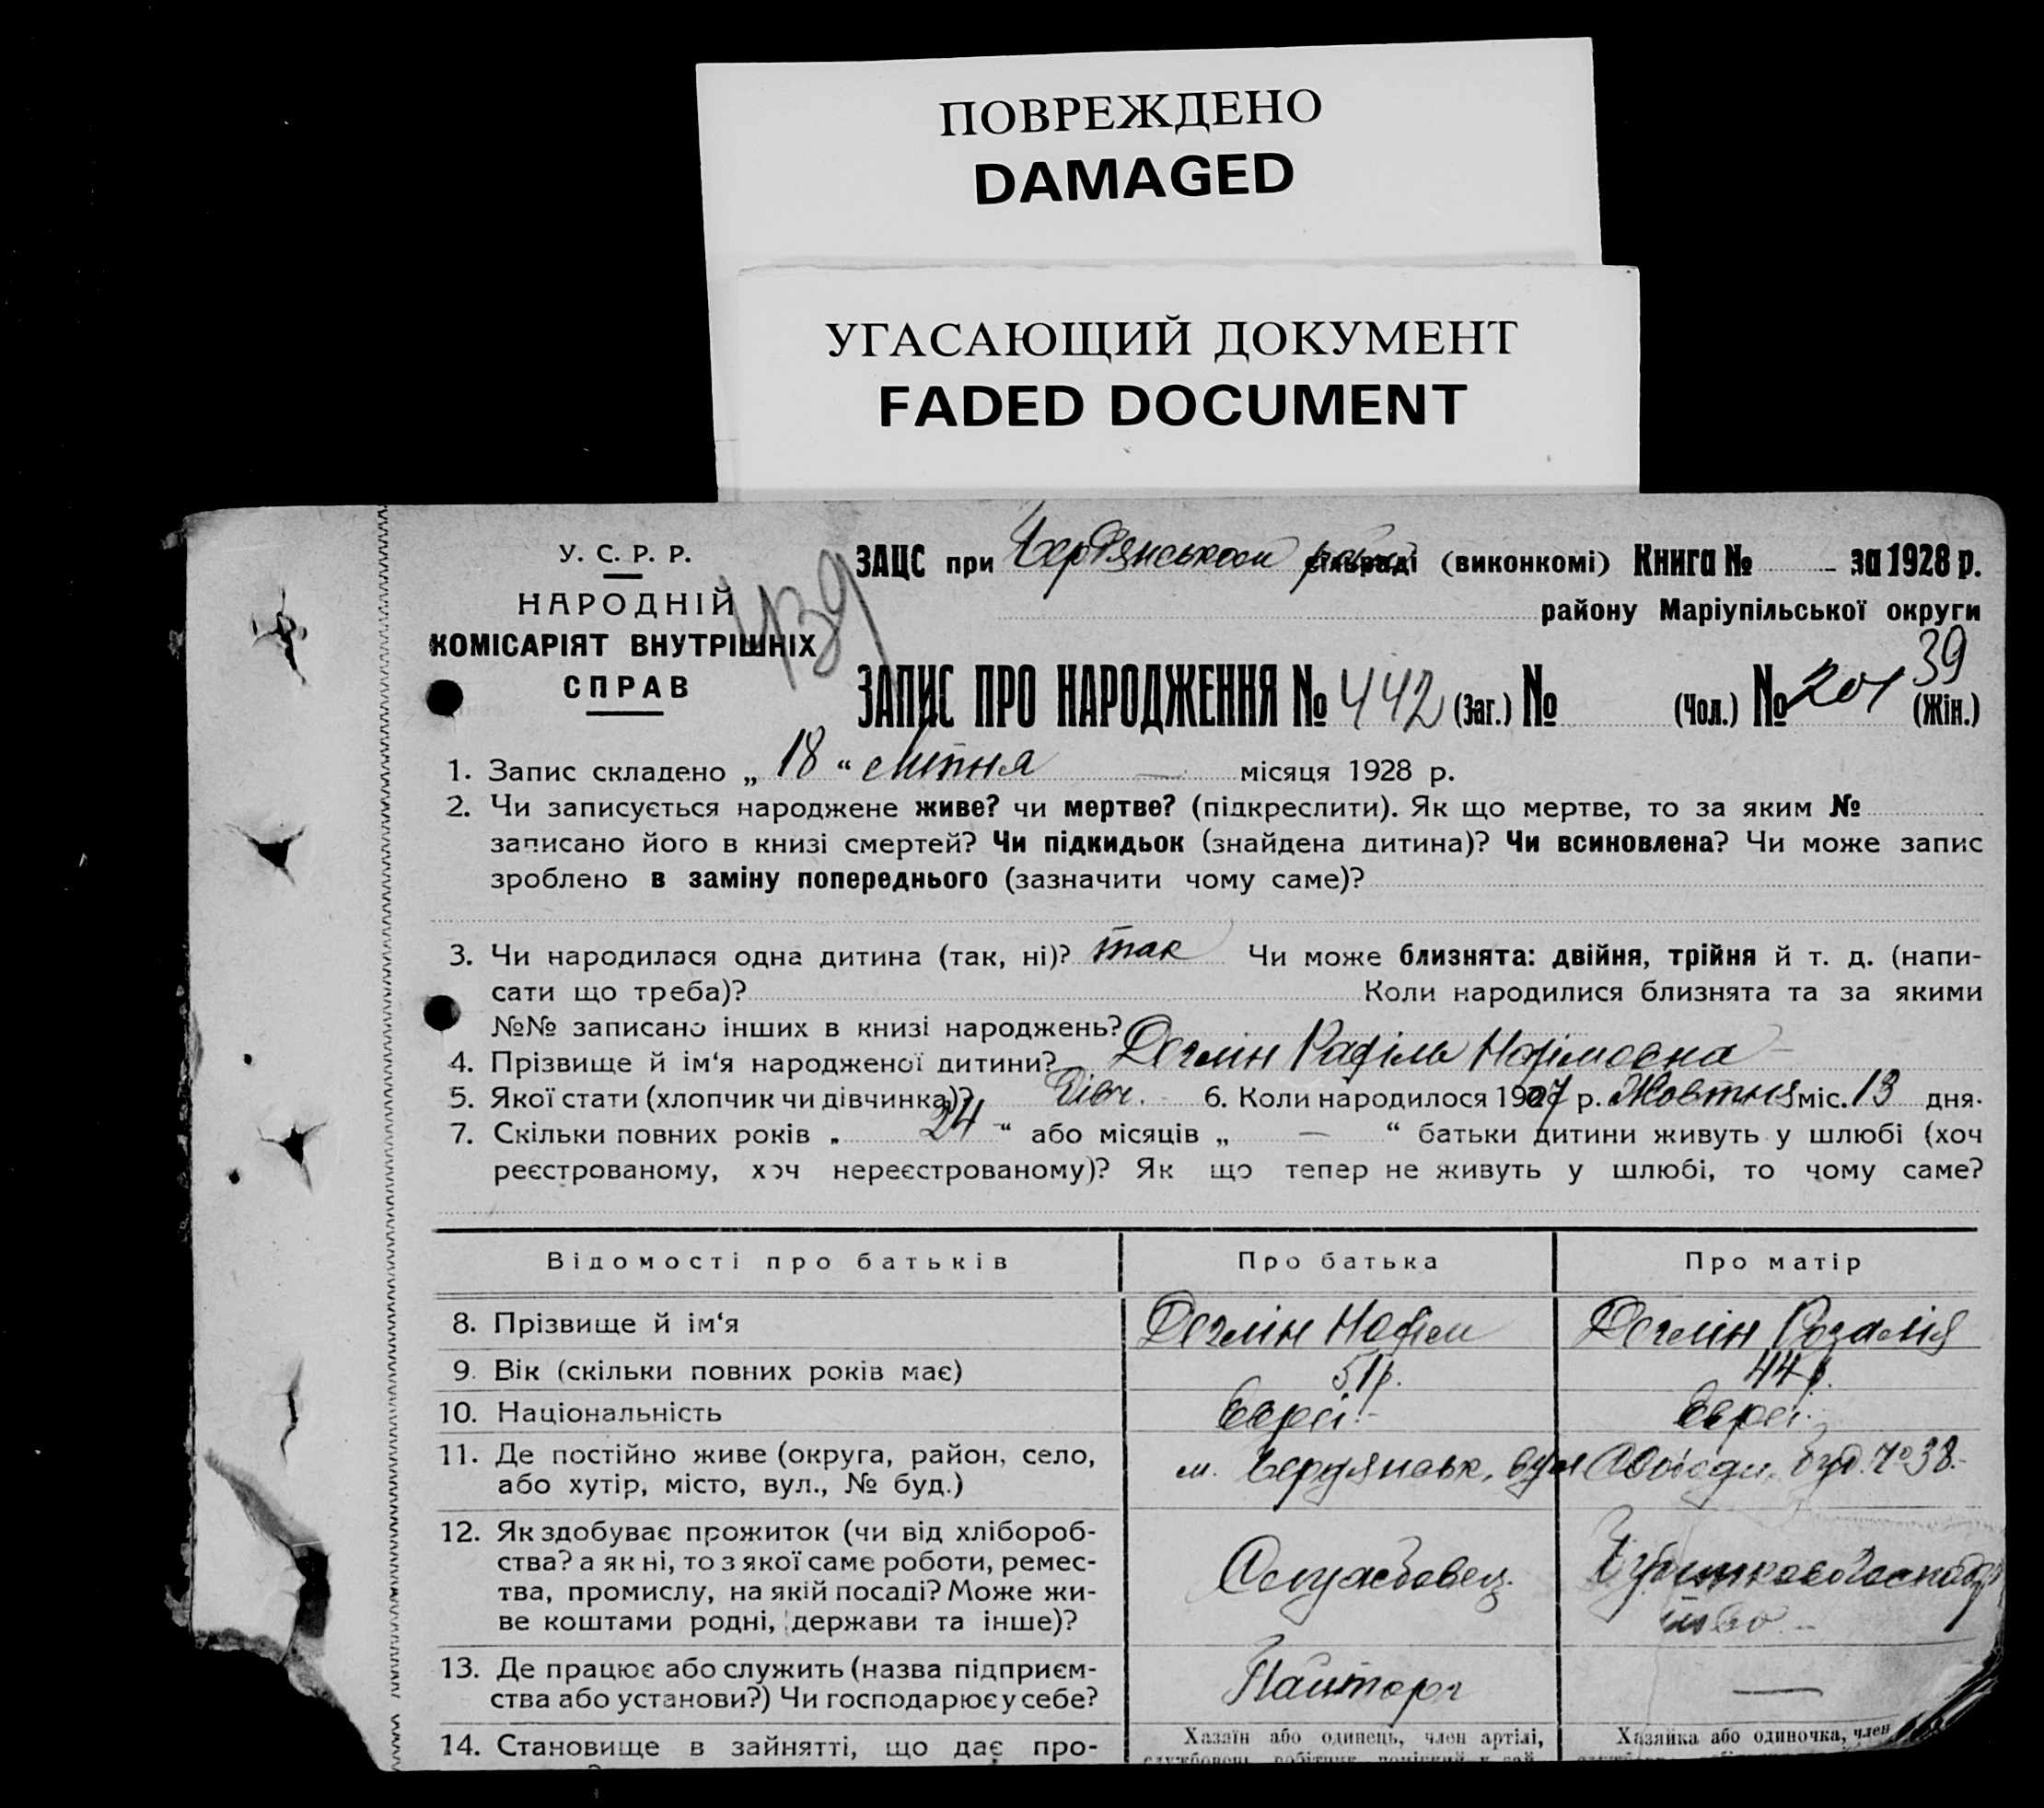 ПОВРЕЖДЕНО
DAMAGED
УГАСАЮЩИЙ ДОКУМЕНТ
FADED DOCUMENT
У. С. Р. Р.
НАРОДНІЙ
КОМІСАРІЯТ ВНУТРІШНІХ
СПРАВ
439
ЗАЦС при Бердянськом сільраді (виконкомі) Книга № за 1928 р.
району Маріупільської округи
39
ЗАПИС ПРО НАРОДЖЕННЯ № 442 (Заг.) № (Чол.) № 201 (Жін.)
1. Запис складено „ 18 “ Липня місяця 1928 р.
2. Чи записується народжене живе? чи мертве? (підкреслити). Як що мертве, то за яким №
записано його в книзі смертей? Чи підкидьок (знайдена дитина)? Чи всиновлена? Чи може запис
зроблено в заміну попереднього (зазначити чому саме)?
3. Чи народилася одна дитина (так, ні)? так Чи може близнята: двійня, трійня й т. д. (напи-
сати що треба)? Коли народилися близнята та за якими
№№ записано інших в книзі народжень?
4. Прізвище й ім‘я народженої дитини? Деглін Рафіль Нофімовна
5. Якої стати (хлопчик чи дівчинка)? Дівч. 6. Коли народилося 1927 р. Жовтня міс. 13 дня.
7. Скільки повних років „ 24 “ або місяців „ — “ батьки дитини живуть у шлюбі (хоч
реєстрованому, хоч нереєстрованому)? Як що тепер не живуть у шлюбі, то чому саме?
Відомості про батьків Про батька Про матір
8. Прізвище й ім‘я Деглін Нофім Деглін Розалія
9. Вік (скільки повних років має) 51 р. 44 р.
10. Національність Єврей.- Єврей.
11. Де постійно живе (округа, район, село, м. Бердянськ, вул Свободи, буд. № 38.
або хутір, місто, вул., № буд.)
12. Як здобуває прожиток (чи від хлібороб-
ства? а як ні, то з якої саме роботи, ремес- Службовец.
тва, промислу, на якій посаді? Може жи-
ве коштами родні, держави та інше)?
13. Де працює або служить (назва підприєм- Пайторг —
ства або установи?) Чи господарює у себе?
14. Становище в зайнятті, що дає про- Хазяїн або одинець, член артілі, Хазяйка або одиночка, член